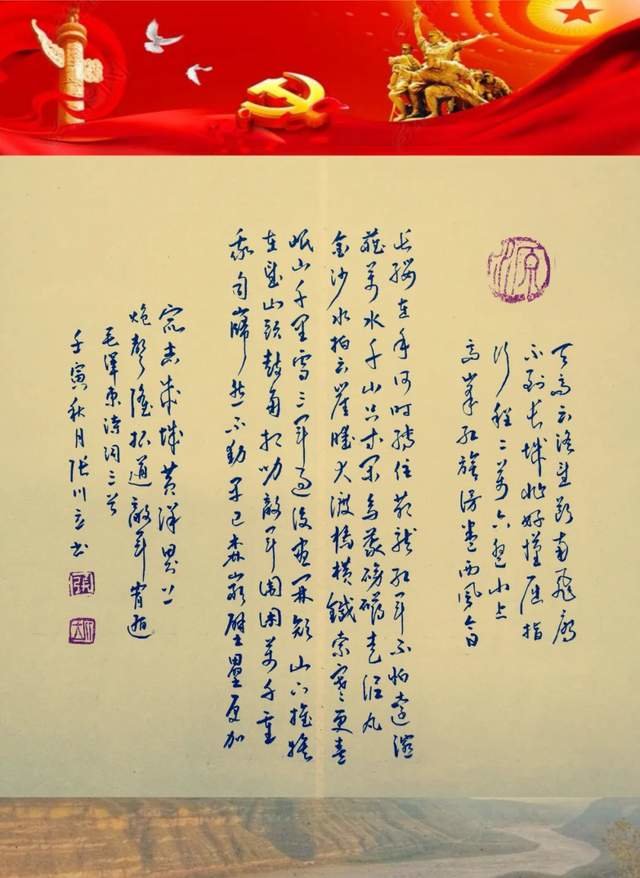 天高云淡望断南飞雁
不到长城非好汉屈指
行程二万六盘山上
高峰红旗漫卷西风今日
长缨在手何时缚住苍龙红军不怕远征
難萬水千山只等闲乌蒙磅礴走泥丸
金沙水拍云崖暖大渡桥横鐵索寒更喜
岷山千里雪三军过后尽开颜山下旌旗
在望山头鼓角相闻敵军围困萬千重
我自巋然不動早已森嚴壁壘更加
众志成城黄洋界上
炮聲隆报道敵军宵遁
毛澤东诗词三首
壬寅秋月張川立书
張